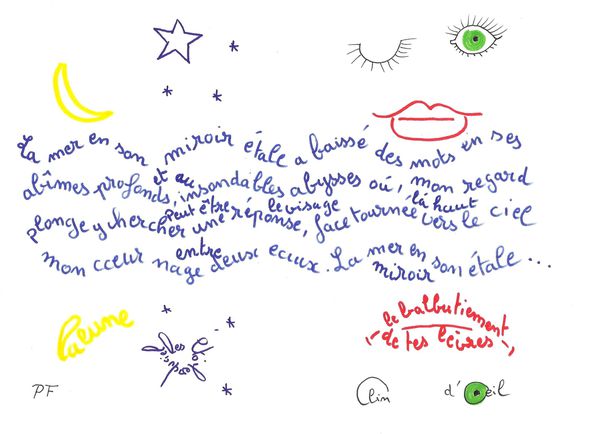 La mer en son miroir étale a baissé des mots en ses
abîmes profonds, et au insondables abysses où, mon regard
peut être le visage là haut
plonge y chercher une réponse, face tournée vers le ciel
mon cœur nage entre deux eaux. La mer en son miroir étale ...
La lune
le balbutiement
de tes lèvres
PF
Clin d'Oeil